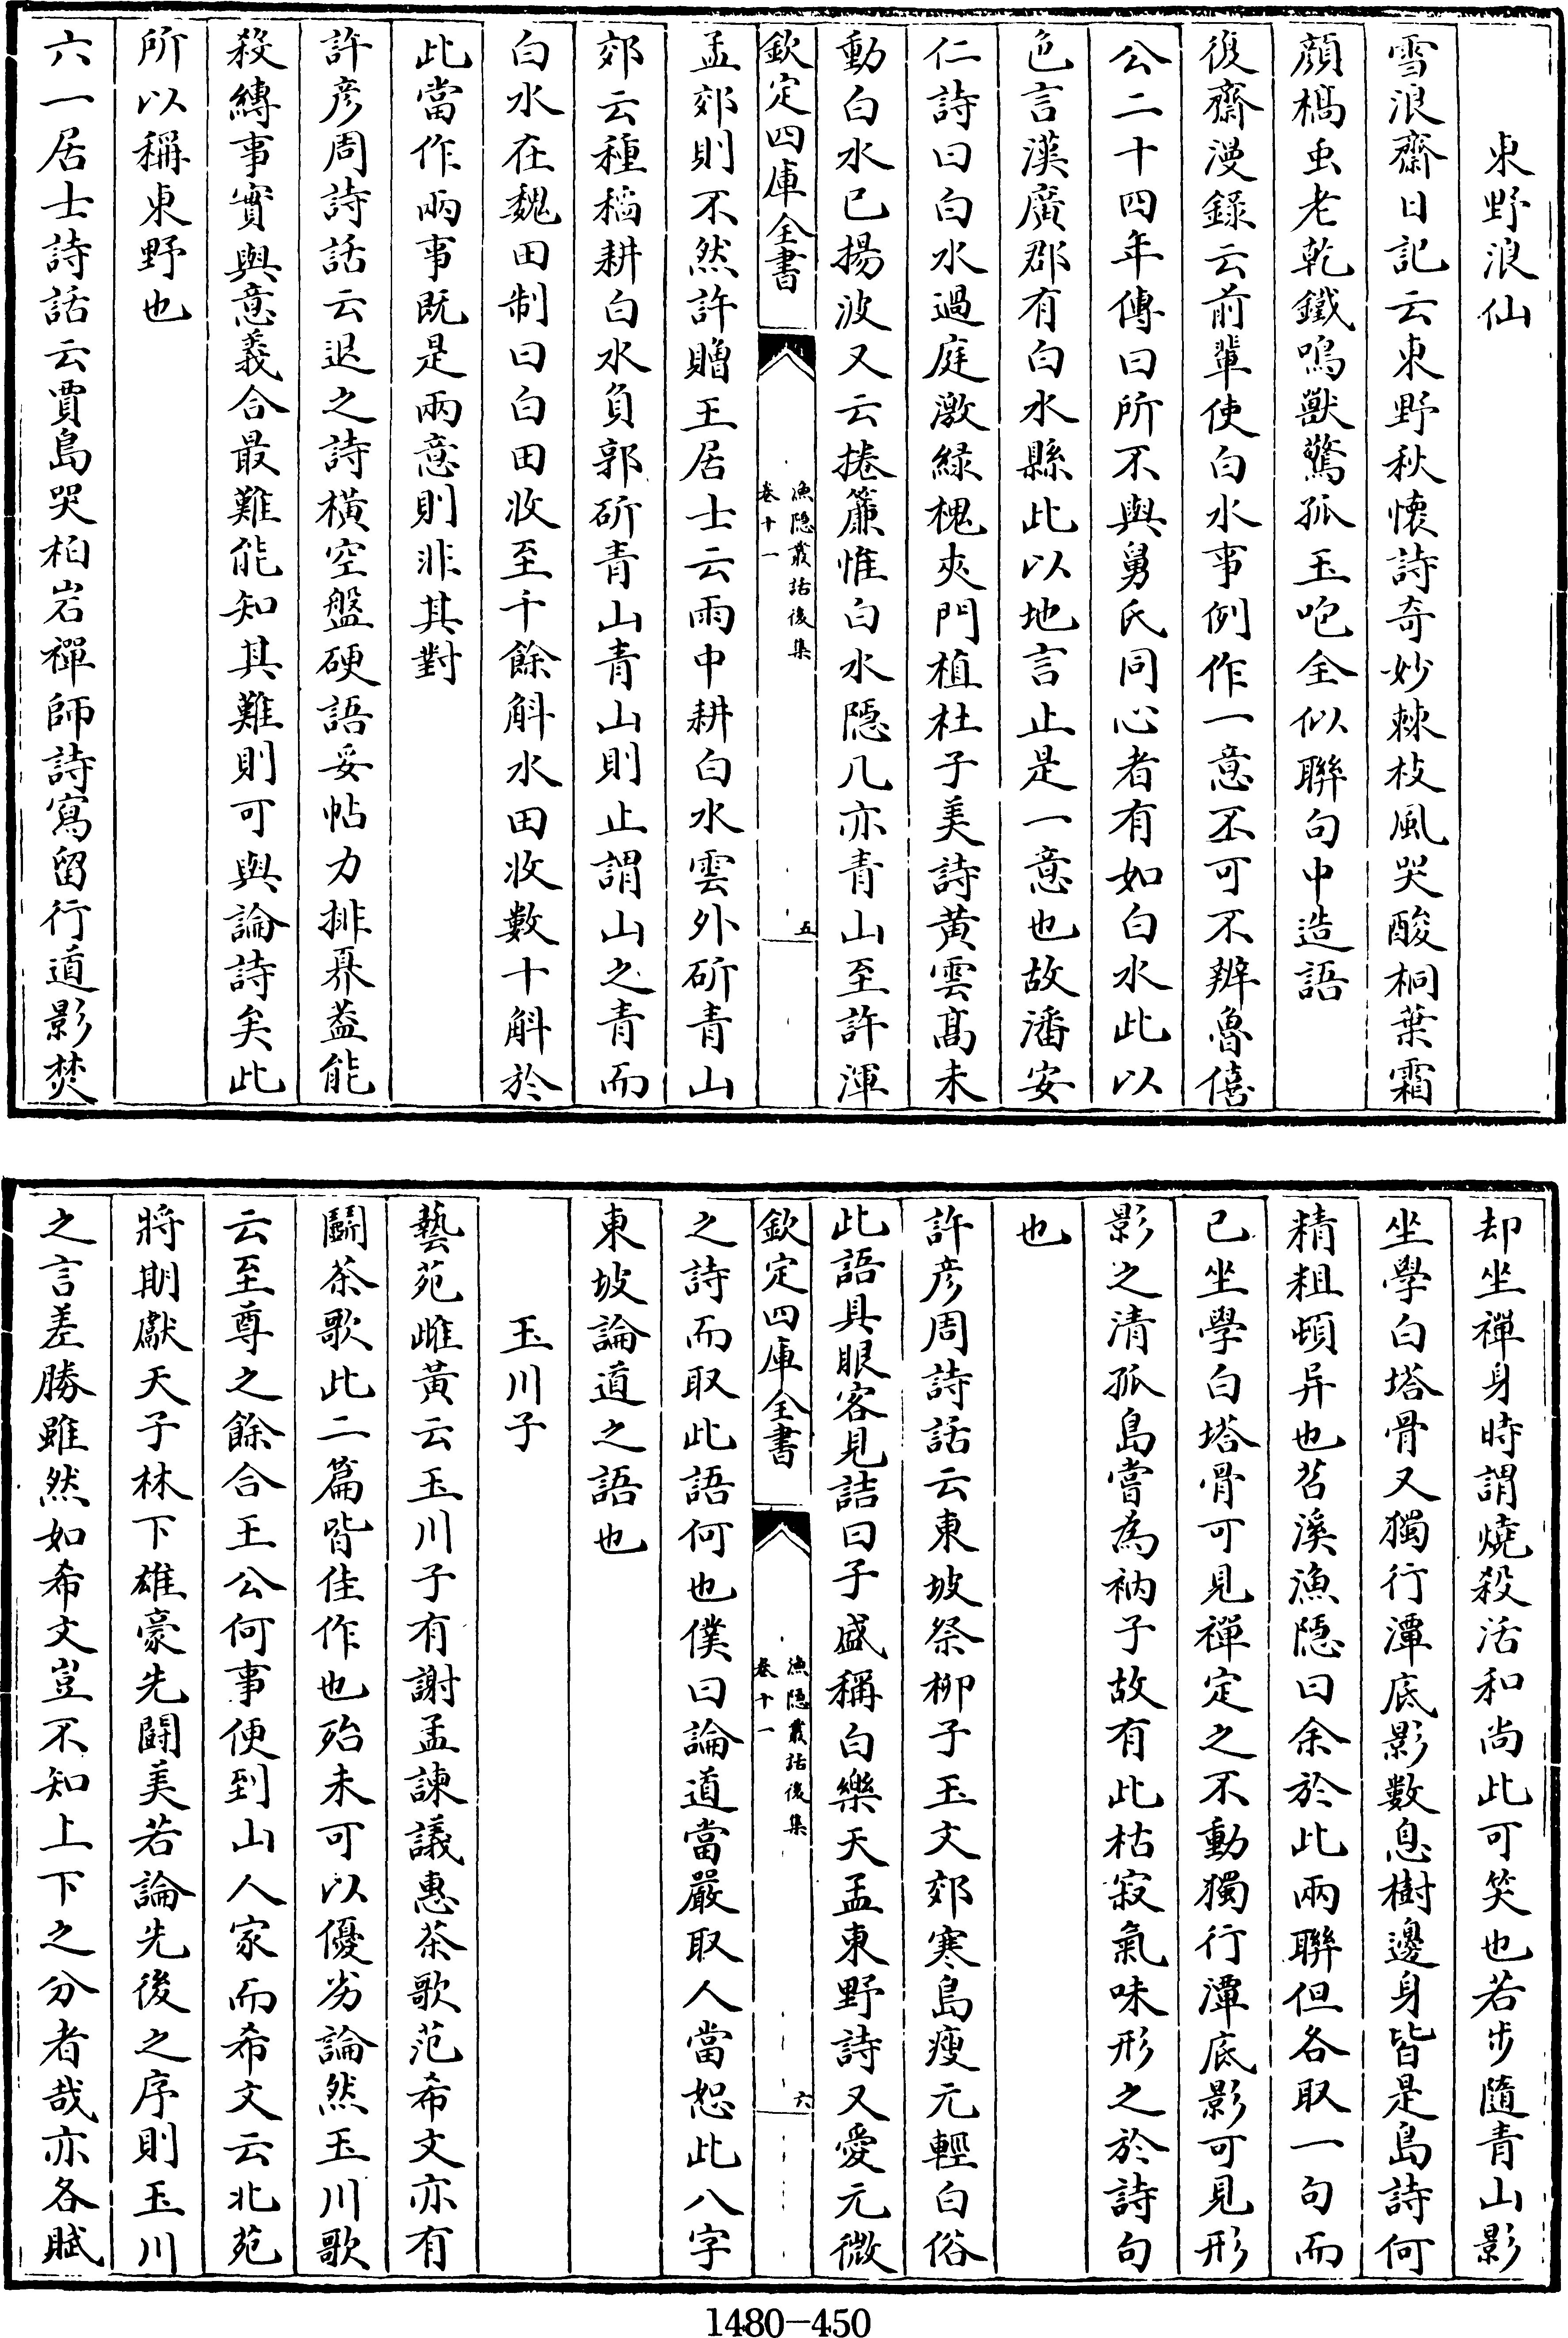 東野浪仙
雪浪齋日記云東野秋懐詩奇妙棘枝風哭酸桐葉霜
顔槁虫老乾鐵鳴獸驚孤玉咆全似聯句中造語
復齋漫録云前輩使白水事例作一意不可不辨魯僖
公二十四年傳曰所不與舅氏同心者有如白水此以
色言漢廣郡有白水縣此以地言止是一意也故潘安
仁詩曰白水過庭激緑槐夾門植杜子美詩黄雲髙未
動白水已揚波又云捲簾惟白水隱几亦青山至許渾
欽定四庫全書
漁隱叢話後集
卷十一
五
孟郊則不然許贈王居士云雨中耕白水雲外斫青山
郊云種稻耕白水負郭斫青山青山則止謂山之青而
白水在魏田制曰白田收至千餘斛水田收數十斛於
此當作兩事既是兩意則非其對
許彦周詩話云退之詩橫空盤硬語妥帖力排奡葢能
殺縛事實與意義合最難能知其難則可與論詩矣此
所以稱東野也
六一居士詩話云賈島哭栢岩禪師詩寫留行道影焚
却坐禪身時謂燒殺活和尚此可笑也若步隨青山影
坐學白塔骨又獨行潭底影數息樹邊身皆是島詩何
精粗頓异也苕溪漁隱曰余於此兩聯但各取一句而
已坐學白塔骨可見禪定之不動獨行潭底影可見形
影之清孤島嘗為衲子故有此枯寂氣味形之於詩句
也
許彦周詩話云東坡祭柳子玉文郊寒島瘦元輕白俗
此語具眼客見詰曰子盛稱白樂天孟東野詩又愛元微
欽定四庫全書
漁隱叢話後集
卷十一
六
之詩而取此語何也僕曰論道當嚴取人當恕此八字
東坡論道之語也
玉川子
藝苑雌黃云玉川子有謝孟諫議惠茶歌范希文亦有
鬬茶歌此二篇皆佳作也殆未可以優劣論然玉川歌
云至尊之餘合王公何事便到山人家而希文云北苑
將期獻天子林下雄豪先鬪美若論先後之序則玉川
之言差勝雖然如希文豈不知上下之分者哉亦各賦
1480-450